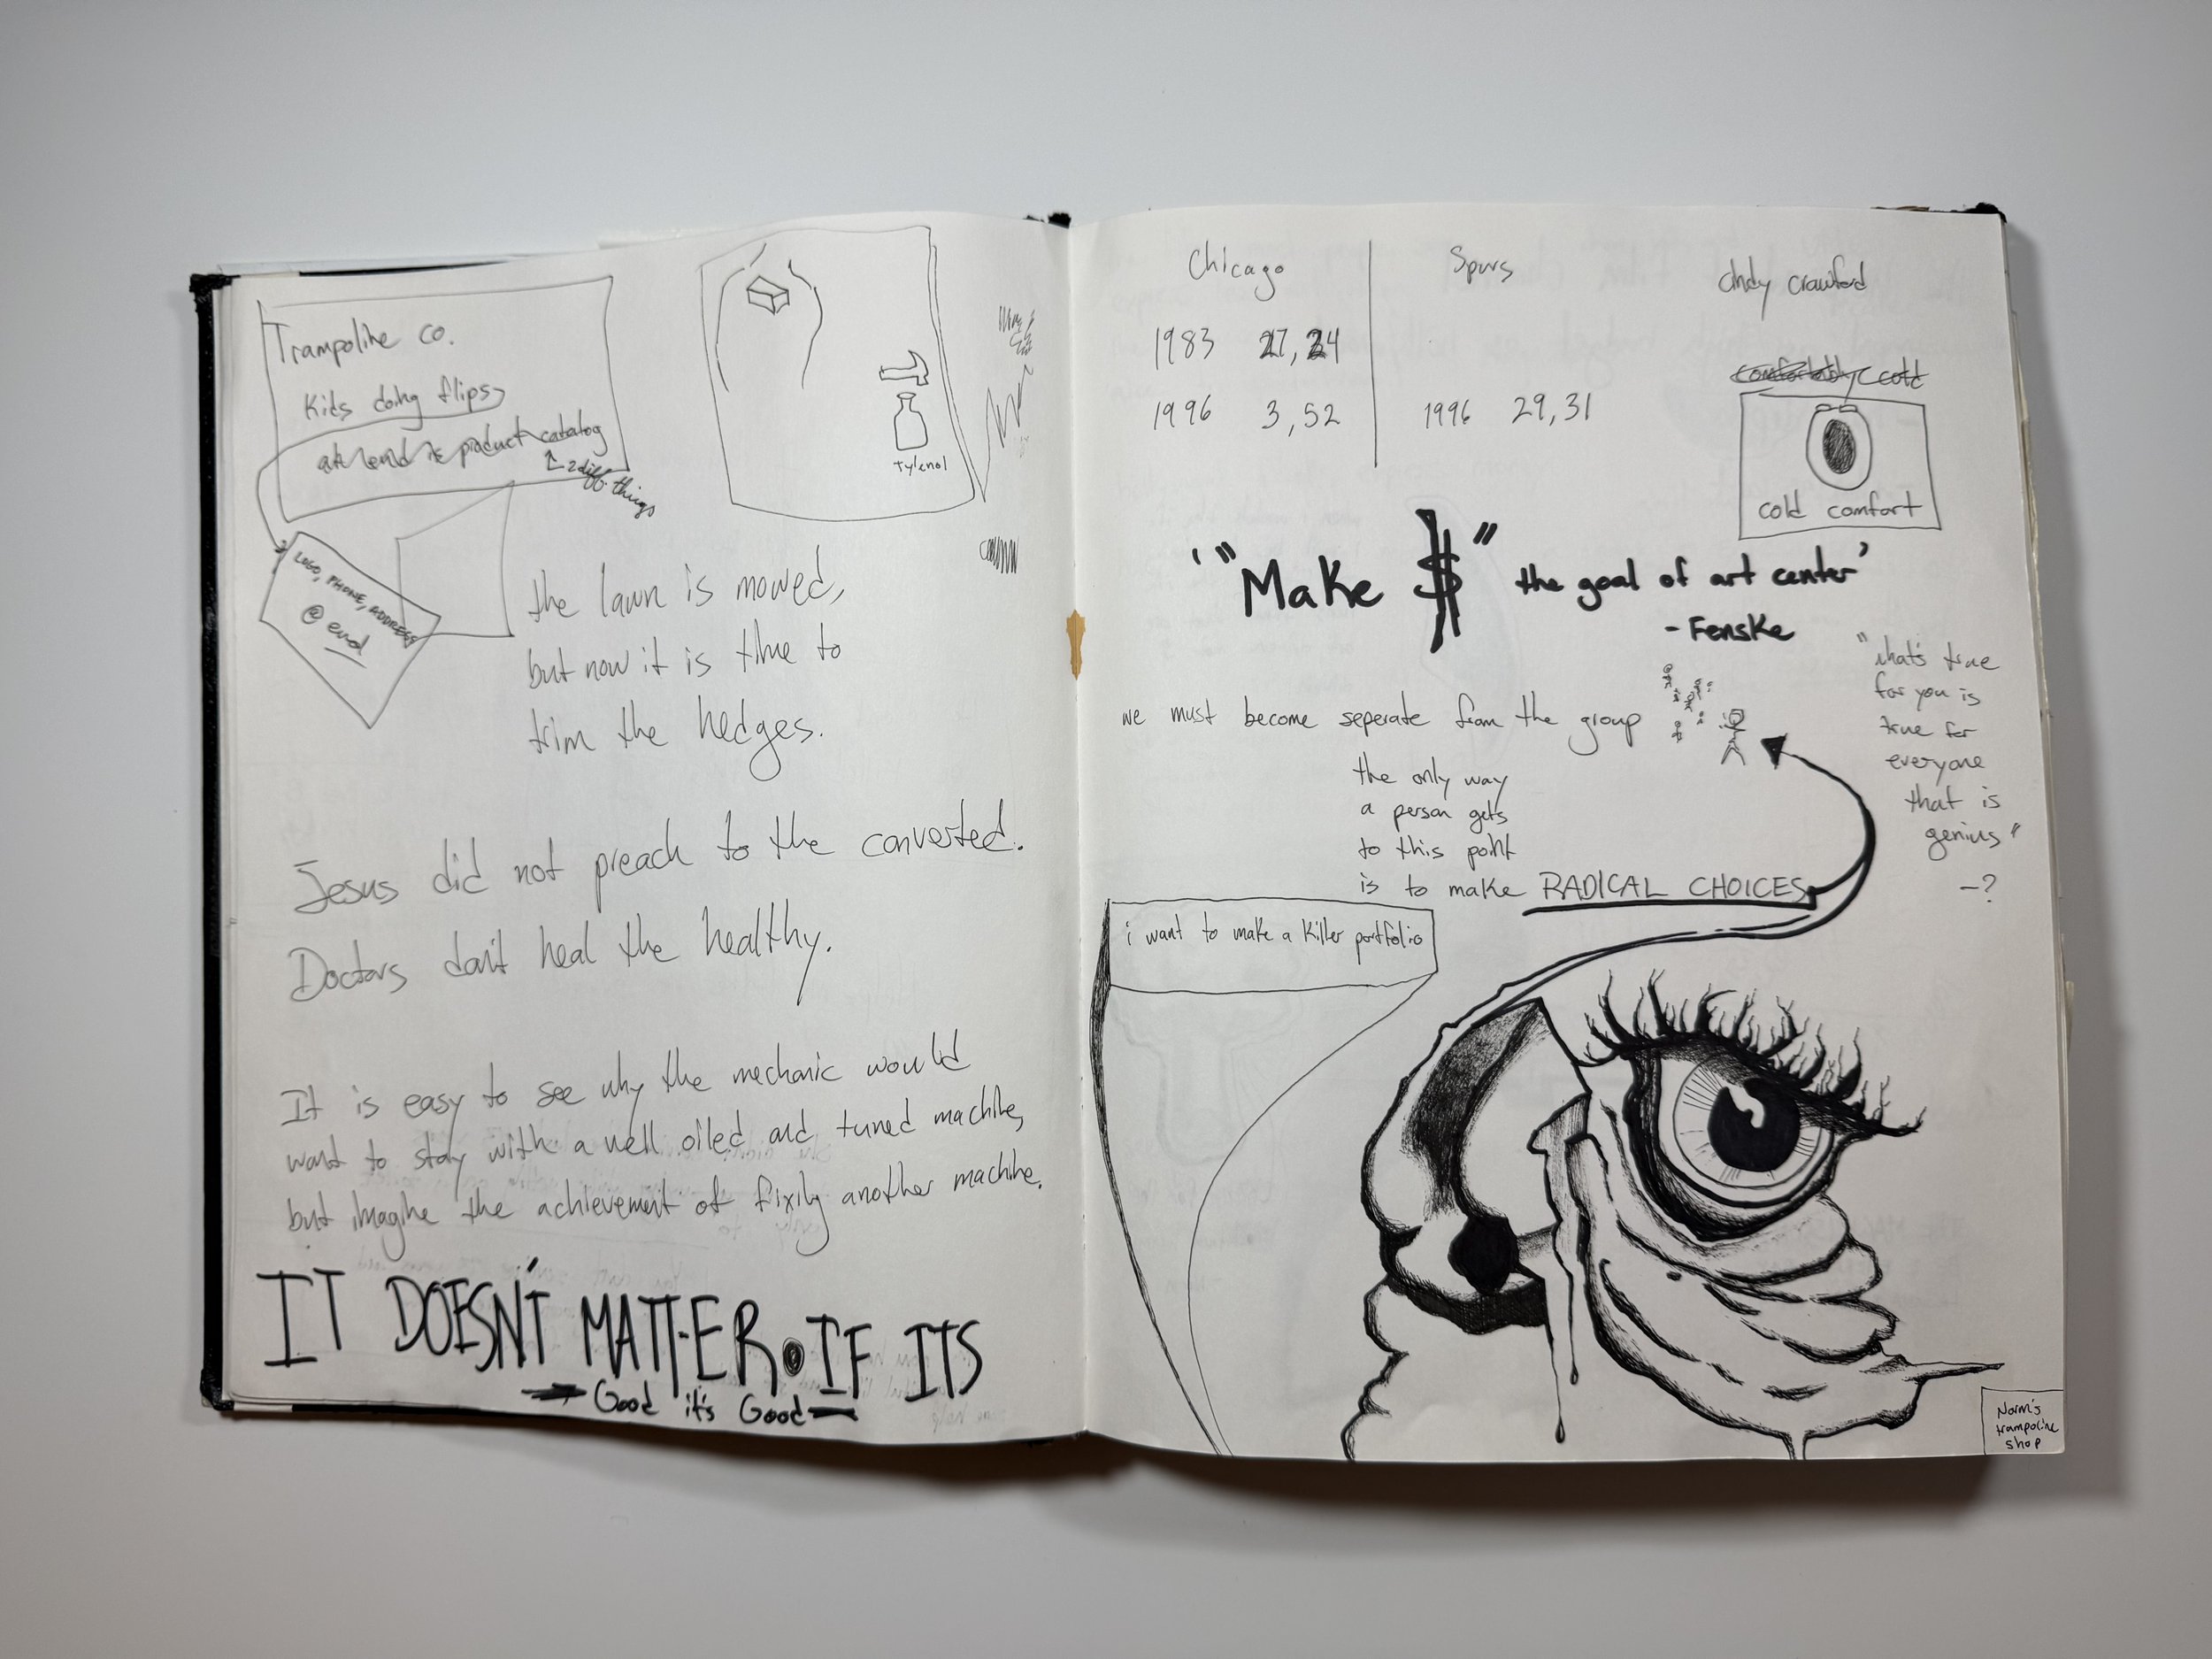 Trampoline co.
Kids doing flips
at end is product catalog
2 diff. things
LOGO, PHONE, ADDRESS
@ end
tylenol
the lawn is mowed,
but now it is time to
trim the hedges.
Jesus did not preach to the converted.
Doctors don't heal the healthy.
It is easy to see why the mechanic would
want to stay with a well oiled and tuned machine,
but imagine the achievement of fixing another machine.
IT DOESN'T MATTER. IF ITS
Good it's Good
Chicago
Spurs
1983 27, 24
1996 3, 52
1996 29, 31
cindy crawford
comfortably cold
cold comfort
'"Make $" the goal of art center'
- Fenske
we must become seperate from the group
the only way
a person gets
to this point
is to make RADICAL CHOICES
"what's true
for you is
true for
everyone
that is
genius"
-?
i want to make a killer portfolio
Norm's
trampoline
shop